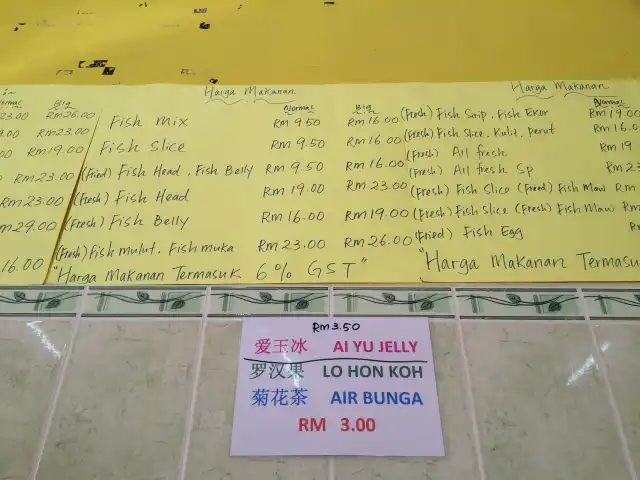 Big
23.00 RM 26.00
RM 23.00
RM 19.00
RM 23.00
RM 23.00
RM 29.00
16.00
Harga Makanan
Normal Big
Fish Mix RM 9.50 RM 16.00
Fish Slice RM 9.50 RM 16.00
(Fried) Fish Head, Fish Belly RM 9.50 RM 16.00
(Fresh) Fish Head RM 19.00 RM 23.00
(Fresh) Fish Belly RM 16.00 RM 19.00
(Fresh) Fish mulut, Fish muka RM 23.00 RM 26.00
"Harga Makanan Termasuk 6% GST"
Harga Makanan
Normal
(Fresh) Fish Ekor RM 19.00
(Fresh) Fish Slice, Kulit, Perut RM 16.0
(Fresh) All fresh RM 19
(Fresh) All fresh Sp RM 23
(Fresh) Fish Slice (Fried) Fish Maw RM
(Fresh) Fish Slice (Fresh) Fish Maw RM
(Fried) Fish Egg
"Harga Makanan Termasu
RM 3.50
爱玉冰 AI YU JELLY
罗汉果 LO HON KOH
菊花茶 AIR BUNGA
RM 3.00